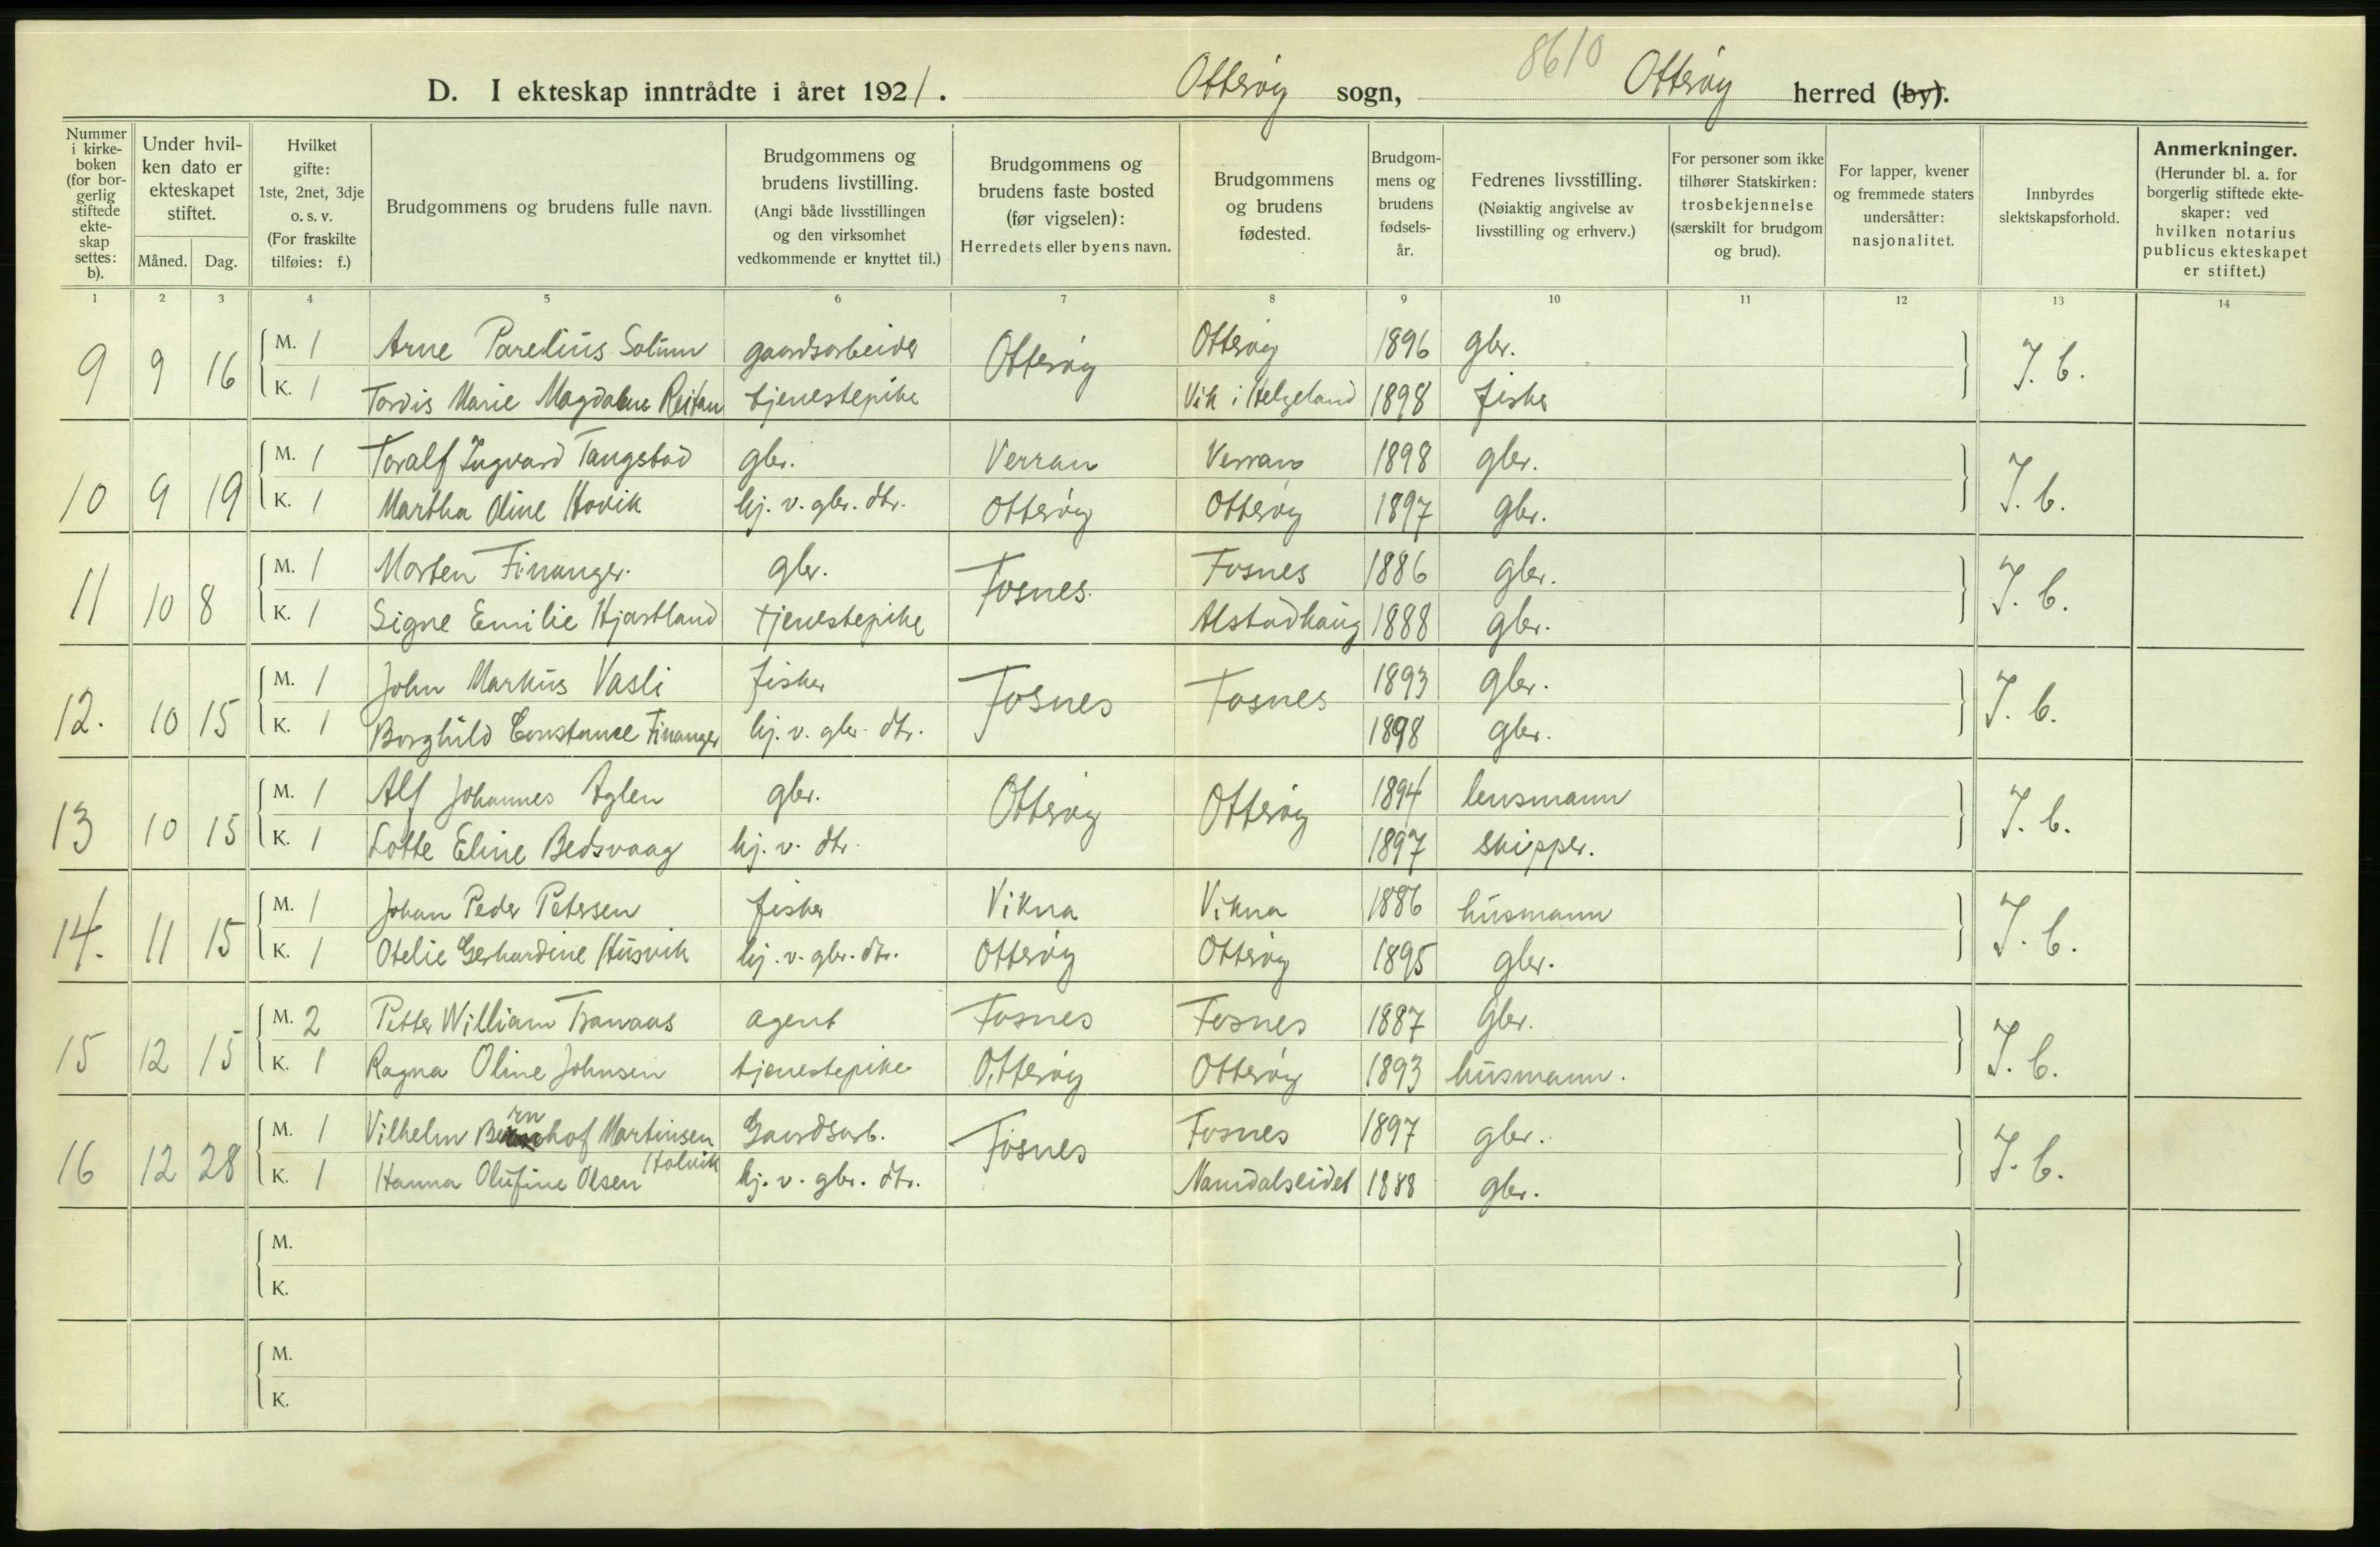 8610
D. I ekteskap inntrådte i året 1921. Otterøy sogn, Otterøy herred (by).
Nummer i kirkeboken (for borgerlig stiftede ekteskap settes: b).
Under hvilken dato er ekteskapet stiftet.
Måned. Dag.
Hvilket gifte: 1ste, 2net, 3dje o. s. v. (For fraskilte tilføies: f.)
Brudgommens og brudens fulle navn.
Brudgommens og brudens livstilling. (Angi både livsstillingen og den virksomhet vedkommende er knyttet til.)
Brudgommens og brudens faste bosted (før vigselen): Herredets eller byens navn.
Brudgommens og brudens fødested.
Brudgommens og brudens fødselsår.
Fedrenes livsstilling. (Nøiaktig angivelse av livsstilling og erhverv.)
For personer som ikke tilhører Statskirken: trosbekjennelse (særskilt for brudgom og brud).
For lapper, kvener og fremmede staters undersåtter: nasjonalitet.
Innbyrdes slektskapsforhold.
Anmerkninger. (Herunder bl. a. for borgerlig stiftede ekteskaper: ved hvilken notarius publicus ekteskapet er stiftet.)
1 2 3 4 5 6 7 8 9 10 11 12 13 14
9 9 16 M. 1 Arne Parelius Solum gaardsarbeider Otterøy Otterøy 1896 gbr. I. b.
K. 1 Tordis Marie Magdalene Reitan tjenestepike Vik i Helgeland 1898 fisker
10 9 19 M. 1 Toralf Ingvard Tangstad gbr. Verran Verran 1898 gbr. I. b.
K. 1 Martha Oline Hovik hj. v. gbr. dtr. Otterøy Otterøy 1897 gbr.
11 10 8 M. 1 Morten Finanger. gbr. Fosnes. Fosnes 1886 gbr. I. b.
K. 1 Signe Emilie Hjartland tjenestepike Alstadhaug 1888 gbr.
12. 10 15 M. 1 John Markus Vasli fisker Fosnes Fosnes 1893 gbr. I. b.
K. 1 Borghild Constance Finanger hj. v. gbr. dtr. 1898 gbr.
13 10 15 M. 1 Alf Johannes Aglen gbr. Otterøy Otterøy 1894 lensmann I. b.
K. 1 Lotte Eline Bedsvaag hj. v. dtr. 1897 skipper.
14. 11 15 M. 1 Johan Peder Petersen fisker Vikna Vikna 1886 husmann I. b.
K. 1 Otelie Gerhardine Husvik hj. v. gbr. dtr. Otterøy Otterøy 1895 gbr.
15 12 15 M. 2 Petter William Tranaas agent Fosnes Fosnes 1887 Gbr. I. b.
K. 1 Ragna Oline Johnsen tjenestepike Otterøy Otterøy 1893 husmann.
16 12 28 M. 1 Vilhelm Bernhof Martinsen Gaardsarb. Fosnes Fosnes 1897 gbr. I. b.
K. 1 Hanna Olufine Olsen Holvik hj. v. gbr. dtr. Namdalseidet 1888 gbr.
M.
K.
M.
K.